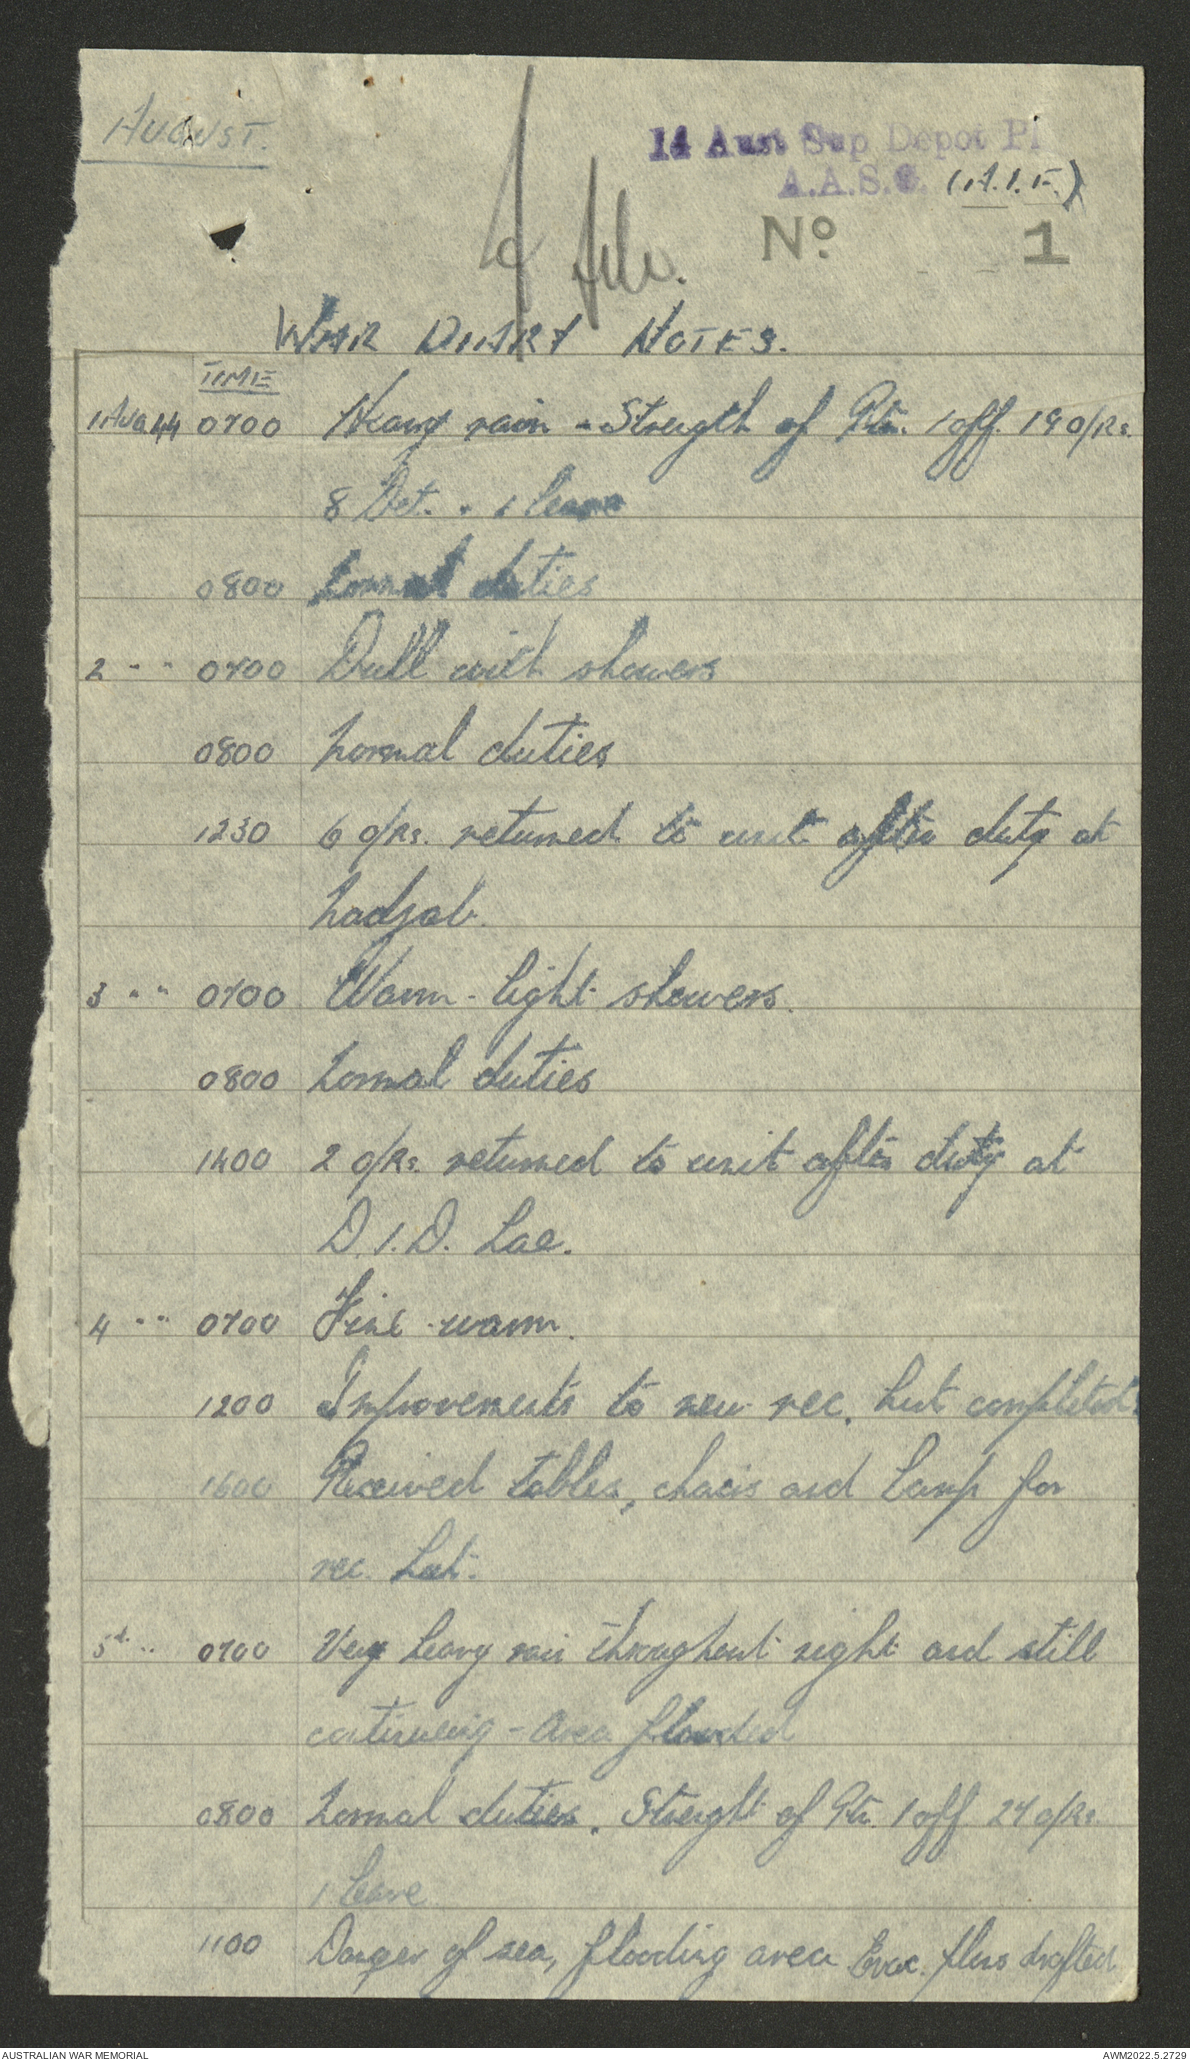 AUGUST.
14 Aust Sup Depot Pl
A.A.S.C. (A.I.F.)
No. 1
file.
WAR DIARY NOTES.
TIME
1 AUG 44 0700 Heavy rain - Strength of Ptn. 1 off. 19 O/Rs.
8 Det. . 1 leave
0800 Normal duties
2 " " 0700 Dull with showers
0800 Normal duties
1230 6 O/Rs. returned to unit after duty at
Nadzab.
3 " " 0700 Warm - light showers.
0800 Normal duties
1400 2 O/Rs. returned to unit after duty at
D.I.D. Lae.
4 " " 0700 Fine - warm.
1200 Improvements to new rec. hut completed.
1600 Received tables, chairs and lamp for
rec. hut.
5th " 0700 Very heavy rain throughout night and still
continuing - Area flooded
0800 Normal duties. Strenght of Ptn. 1 off 27 O/Rs.
1 leave
1100 Danger of sea, flooding area Evac. plans drafted
AUSTRALIAN WAR MEMORIAL AWM2022.5.2729